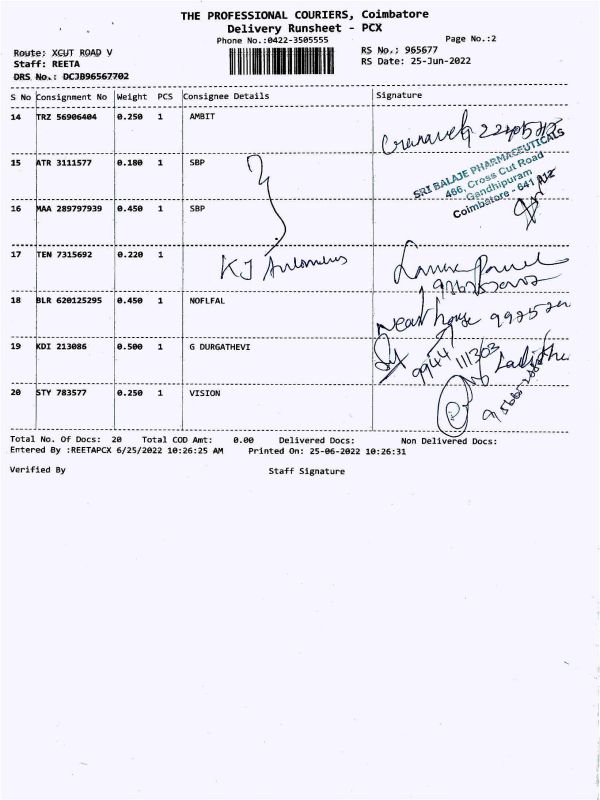 THE PROFESSIONAL COURIERS, Coimbatore
Delivery Runsheet - PCX
Phone No.:0422-3505555 Page No.:2
Route: XCUT ROAD V RS No.: 965677
Staff: REETA RS Date: 25-Jun-2022
DRS No.: DCJB96567702
S No Consignment No Weight PCS Consignee Details Signature
14 TRZ 56906404 0.250 1 AMBIT
15 ATR 3111577 0.180 1 SBP
SRI BALAJE PHARMACEUTICALS
466, Cross Cut Road
Gandhipuram
Coimbatore - 641 012
16 MAA 289797939 0.450 1 SBP
17 TEN 7315692 0.220 1 KJ
18 BLR 620125295 0.450 1 NOFLFAL
Near house
19 KDI 213086 0.500 1 G DURGATHEVI
9944 111303
20 STY 783577 0.250 1 VISION
Total No. Of Docs: 20 Total COD Amt: 0.00 Delivered Docs: Non Delivered Docs:
Entered By :REETAPCX 6/25/2022 10:26:25 AM Printed On: 25-06-2022 10:26:31
Verified By Staff Signature